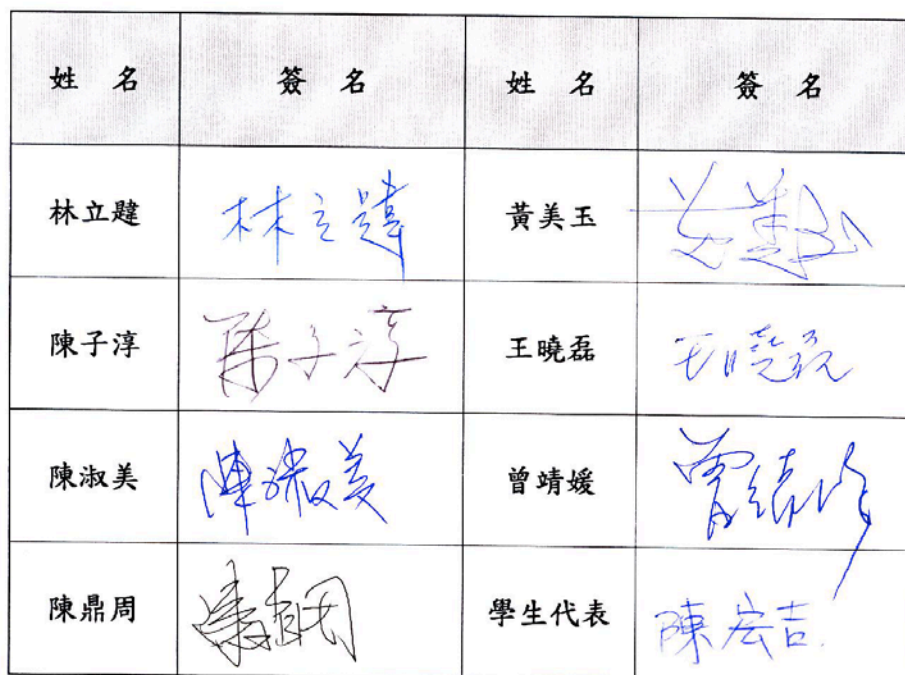 姓 名 簽 名 姓 名 簽 名
林立韙 林立韙 黃美玉 黃美玉
陳子淳 陳子淳 王曉磊 王曉磊
陳淑美 陳淑美 曾靖媛 曾靖媛
陳鼎周 學生代表 陳宏吉